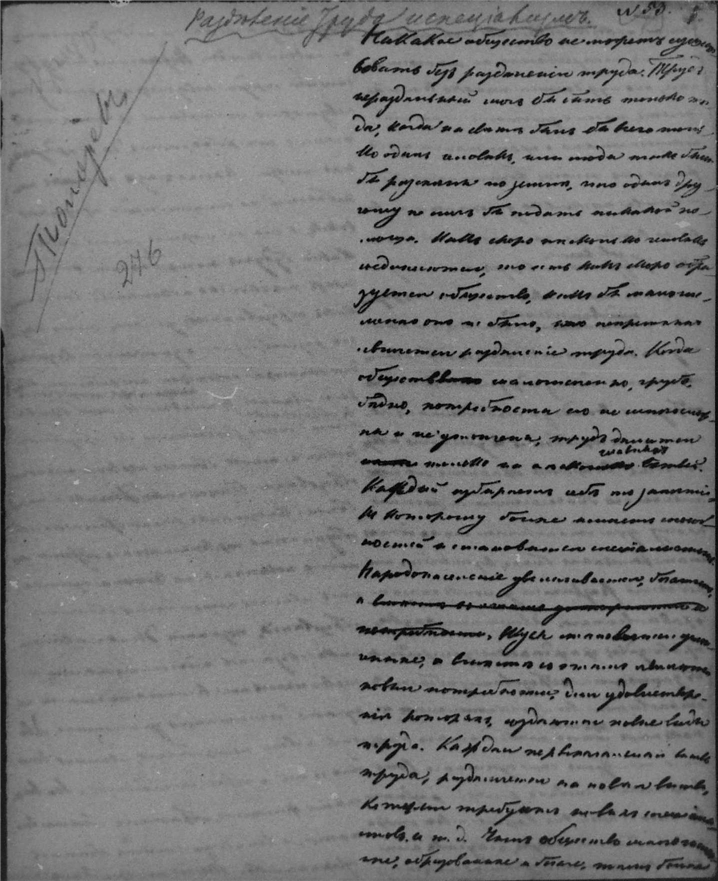 Раздѣленіе Труда и спеціализмъ.
№ 53.
Пономаревъ
276
Никакое общество не можетъ сущест-
вовать безъ раздѣленія труда. Трудъ
нераздѣльный могъ бы быть только то-
гда, когда на свѣтѣ былъ бы всего толь-
ко одинъ человѣкъ, или люди такъ были
бы разсѣяны по землѣ, что одинъ дру-
гому не могъ бы подать никакой по-
мощи. Какъ скоро нѣсколько человѣкъ
соединяются, то есть какъ скоро обра-
зуется общество, какъ бы малочис-
ленно оно ни было, то непремѣнно
является раздѣленіе труда. Когда
общество малочисленно, грубо,
бѣдно, потребности его не многослож-
ны и не утончены, трудъ дѣлится
только на нѣсколько главныхъ вѣтвей.
Каждый избираетъ себѣ то занятіе,
къ которому болѣе имѣетъ способ-
ностей и становится спеціалистомъ.
Народонаселеніе увеличивается, богатѣетъ,
а
потребности. Вкусъ становится утон-
ченнѣе, а вмѣстѣ съ этимъ являются
новыя потребности, для удовлетворе-
нія которыхъ, создаются новые виды
труда. Каждая первоначальная вѣтвь
труда, раздѣляется на новыя вѣтви,
которыя требуютъ новыхъ спеціали-
стовъ и т. д. Чѣмъ общество многочислен-
нѣе, образованнѣе и богаче, тѣмъ болѣе